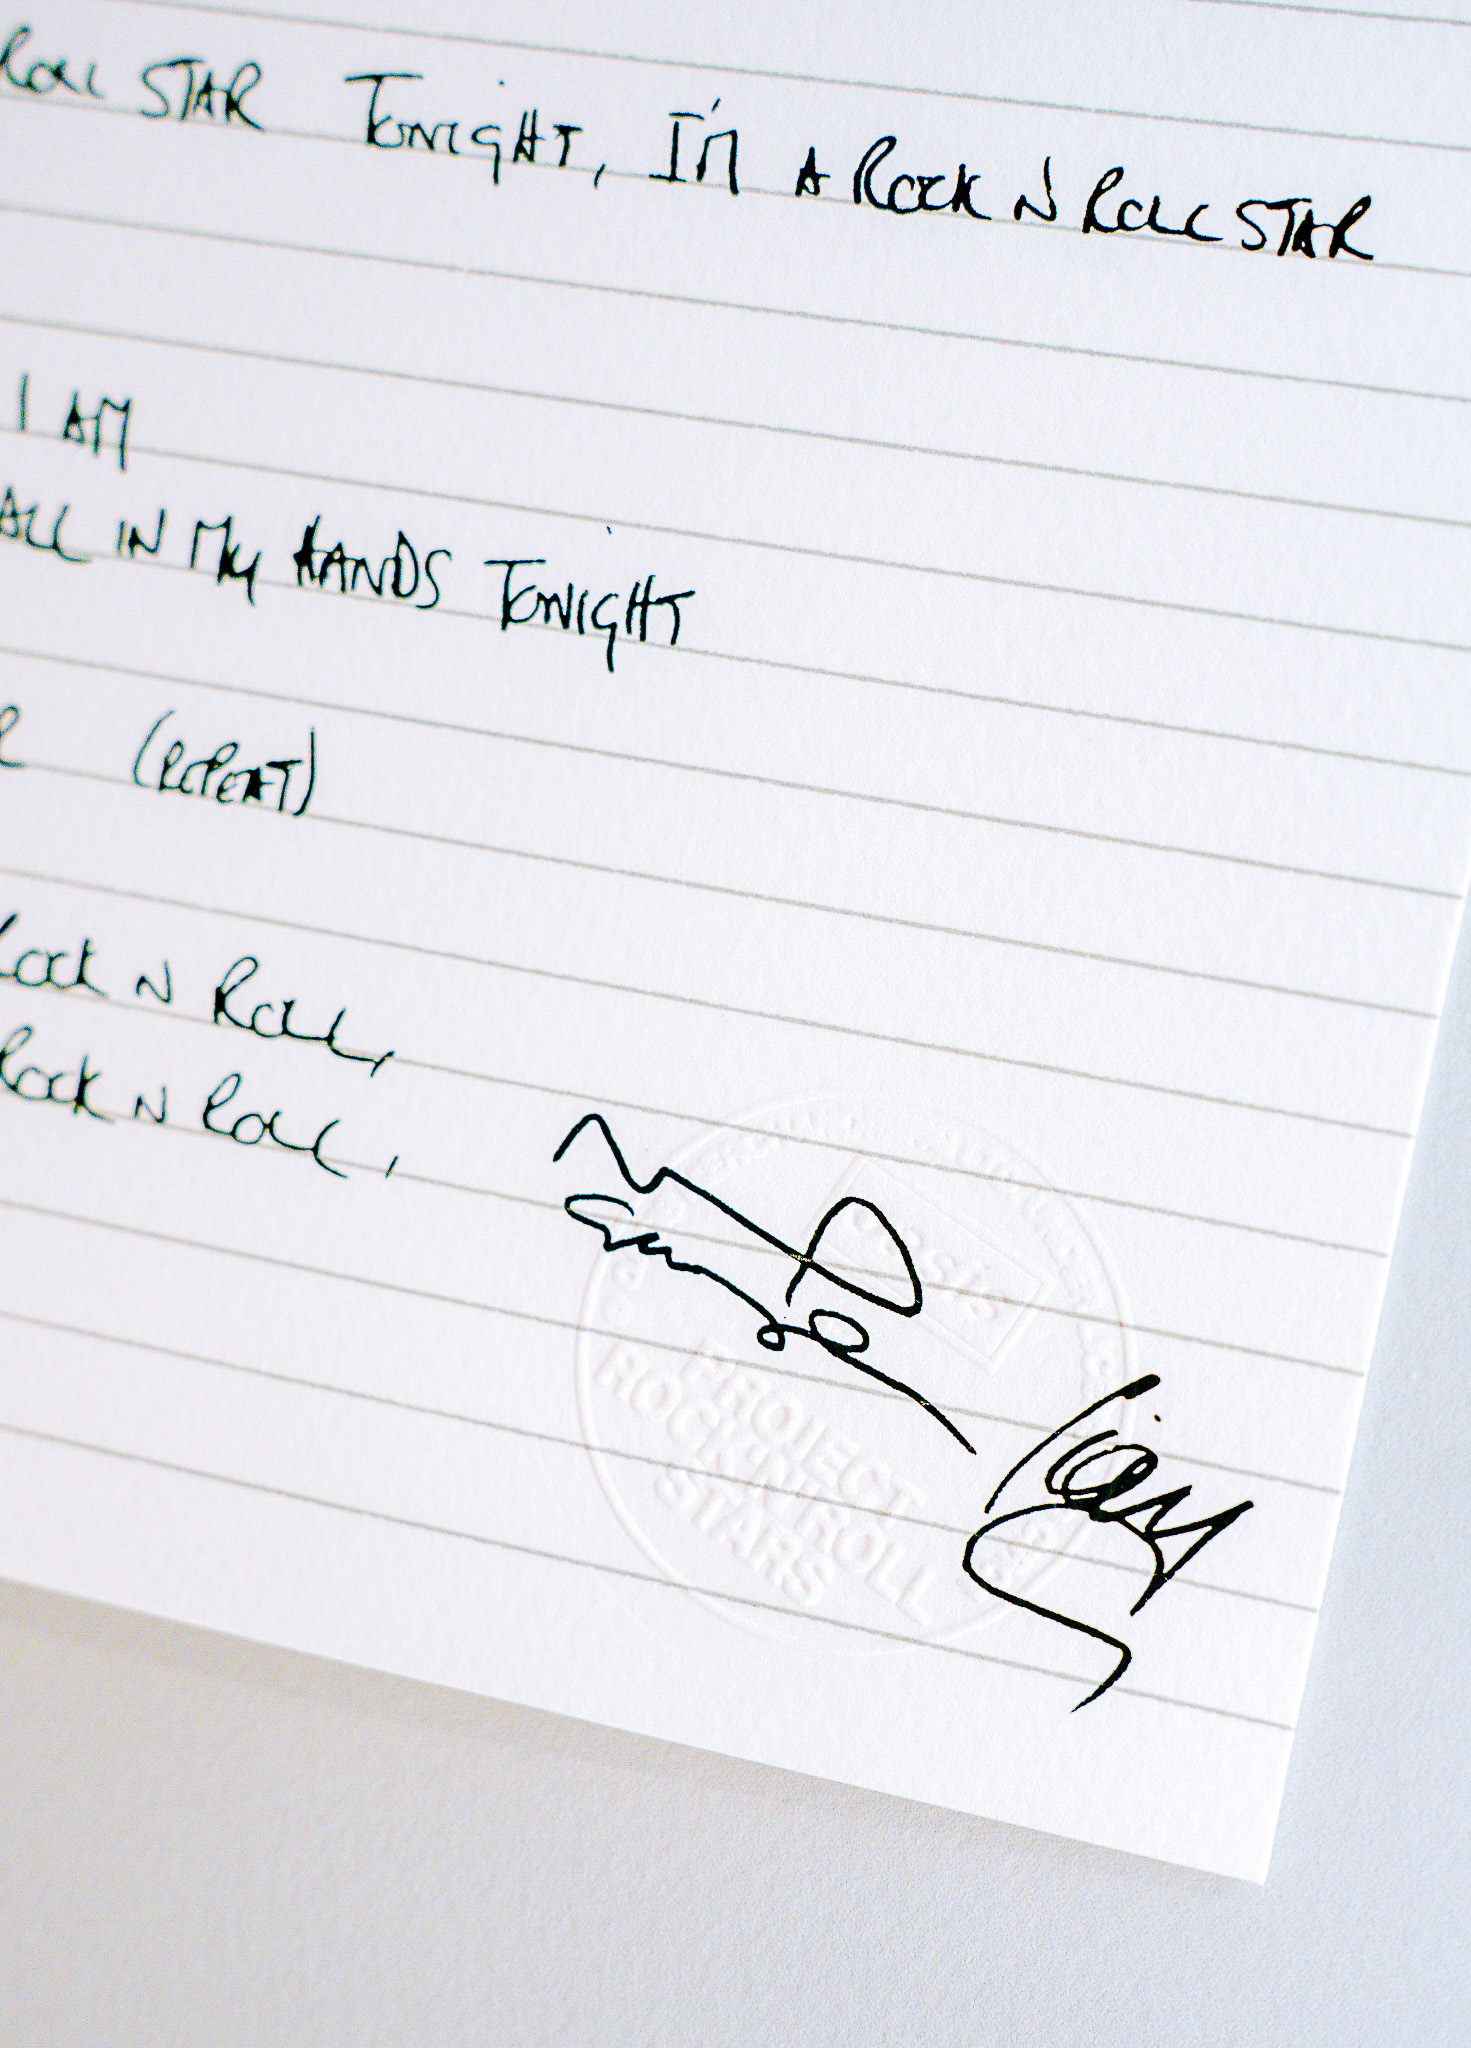 ROLL STAR TONIGHT, I'M A ROCK N ROLL STAR
I AM
ALL IN MY HANDS TONIGHT
R (REPEAT)
ROCK N ROLL,
ROCK N ROLL,
oasis
PROJECT
ROCK'N'ROLL
STARS
Liam